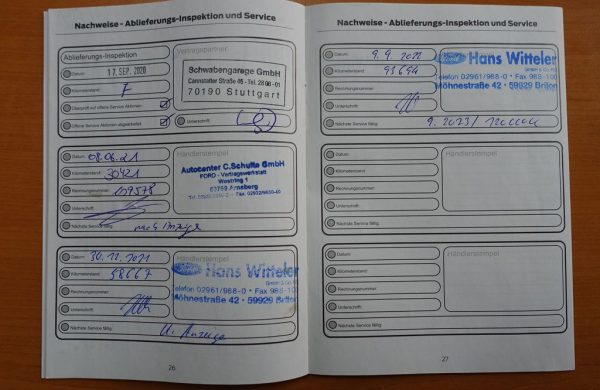 Nachweise - Ablieferungs-Inspektion und Service
Ablieferungs-Inspektion
Vertragspartner
Datum: 17. SEP. 2020
Kilometerstand: 7
Überprüft auf offene Service Aktionen:
Offene Service Aktionen abgearbeitet:
Unterschrift:
Schwabengarage GmbH
Cannstatter Straße 46 - Tel. 28 08-01
70190 Stuttgart
Datum: 08.06.21
Kilometerstand: 30421
Rechnungsnummer: 109578
Unterschrift:
Nächste Service fällig: nach Anzeige
Händlerstempel
Autocenter C.Schulte GmbH
FORD - Vertragswerkstatt
Wostring 1
59759 Arnsberg
Datum: 30.12.2021
Kilometerstand: 58667
Rechnungsnummer:
Unterschrift:
Nächste Service fällig: n. Anzeige
Händlerstempel
Ford Hans Witteler
GmbH & Co. KG
Telefon 02961/968-0 • Fax 968-100
Möhnestraße 42 • 59929 Brilon
26
Nachweise - Ablieferungs-Inspektion und Service
Datum: 9.9.2022
Kilometerstand: 93694
Rechnungsnummer:
Unterschrift:
Nächste Service fällig: 9.2023/120000
Ford Hans Witteler
GmbH & Co. KG
Telefon 02961/968-0 • Fax 968-100
Möhnestraße 42 • 59929 Brilon
Datum:
Kilometerstand:
Rechnungsnummer:
Unterschrift:
Nächste Service fällig:
Händlerstempel
Datum:
Kilometerstand:
Rechnungsnummer:
Unterschrift:
Nächste Service fällig:
Händlerstempel
27